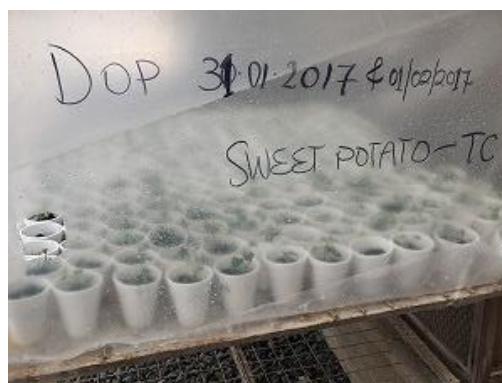 DOP 31 01 2017 & 01/02/2017
SWEET POTATO-TC